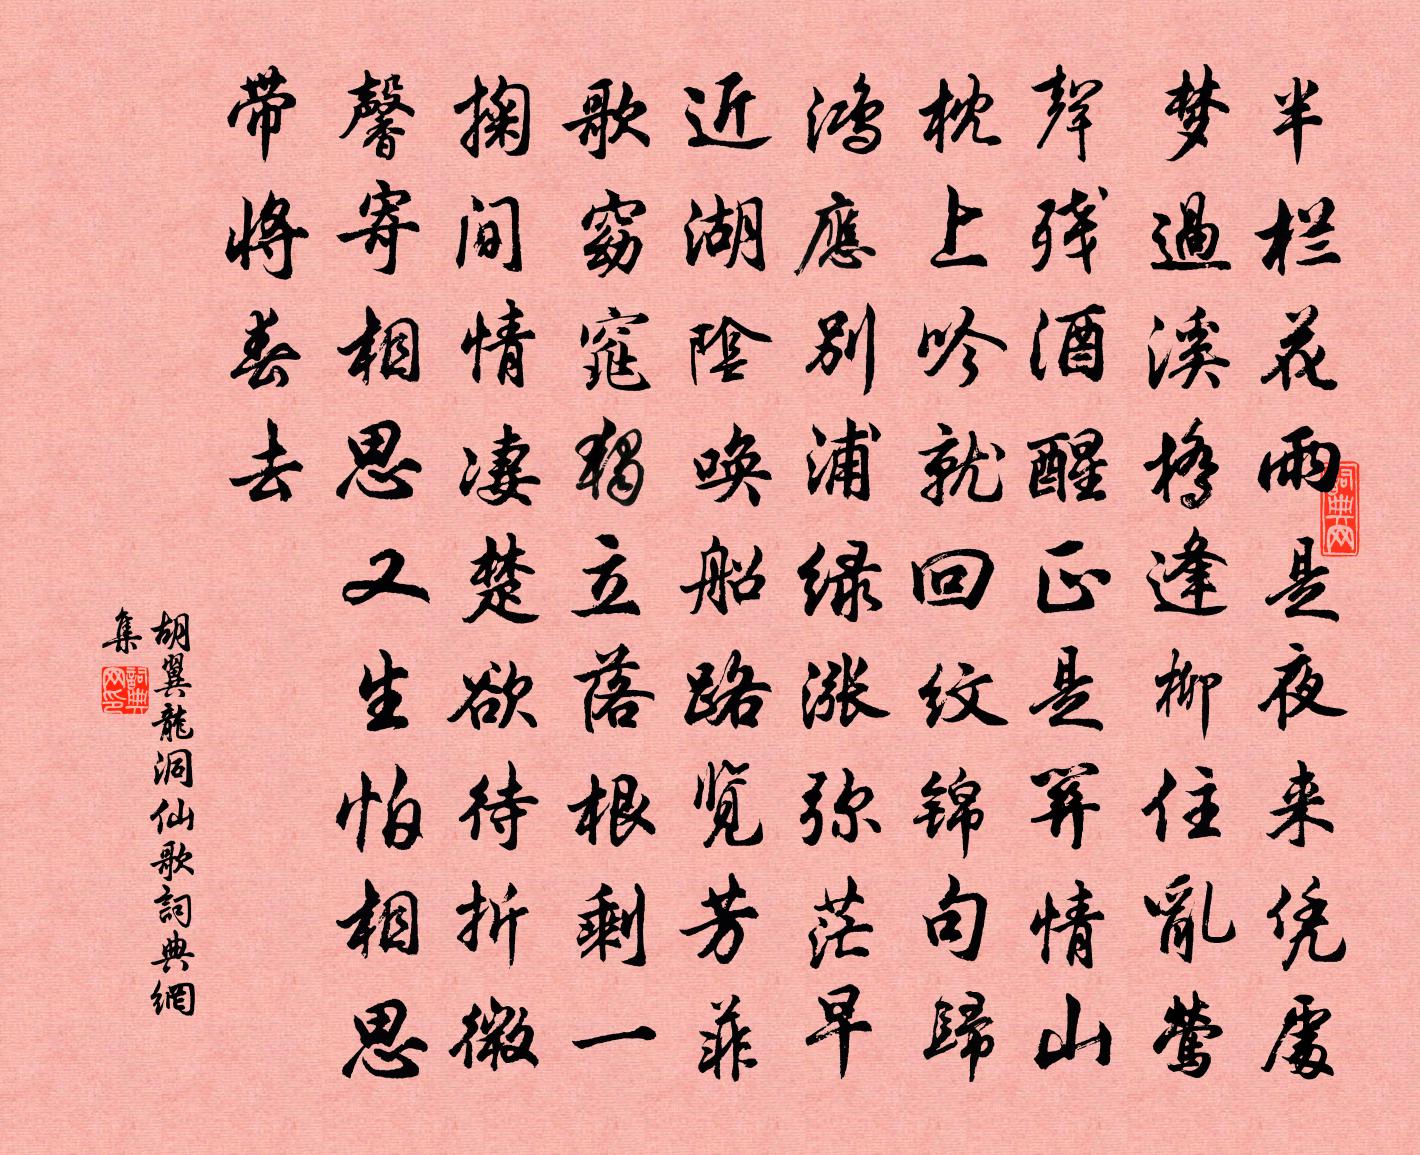 半栏花雨是夜来凭處
梦過溪橋逢柳住亂鶯
聲残酒醒正是关情山
枕上吟就回纹锦句歸
鸿應别浦绿漲弥茫早
近湖陰唤船路览芳菲
歌窈窕独立落根剩一
掬间情凄楚欲待折微
馨寄相思又生怕相思
带将春去
胡翼龍洞仙歌詞典網
集
詞典网
詞典网印